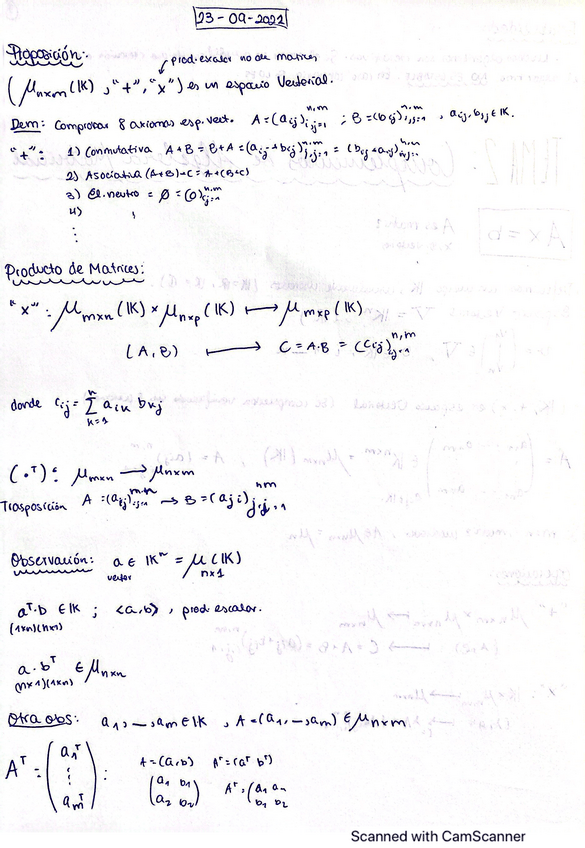 23-09-2022
Proposición:
prod. escalar no de matrices
(μₙₓₘ(lK), "+", "x") es un espacio Vectorial.
Dem: Comprobar 8 axiomas esp. vect. A=(aᵢⱼ)ᵢ,ⱼ₌₁ⁿ·ᵐ ; B=(bᵢⱼ)ᵢ,ⱼ₌₁ⁿ·ᵐ , aᵢⱼ, bᵢⱼ ∈ lK.
"+": 1) Conmutativa A+B = B+A = (aᵢⱼ+bᵢⱼ)ᵢ,ⱼ₌₁ⁿ·ᵐ = (bᵢⱼ+aᵢⱼ)ᵢ,ⱼ₌₁ⁿ·ᵐ
2) Asociativa (A+B)+C = A+(B+C)
3) El. neutro = Ø = (0)ᵢⱼ₌₁ⁿ·ᵐ
4)
⋮
Producto de Matrices:
"x": μₘₓₙ(lK) × μₙₓₚ(lK) ⟼ μₘₓₚ(lK)
(A,B) ⟼ C = A·B = (cᵢⱼ)ᵢ,ⱼ₌₁ⁿ·ᵐ
donde cᵢⱼ = Σₖ₌₁ⁿ aᵢₖ bₖⱼ
(·ᵀ): μₘₓₙ ⟶ μₙₓₘ
Trasposición A = (aᵢⱼ)ᵢ,ⱼ₌₁ᵐ·ⁿ → B = (aⱼᵢ)ⱼ,ᵢ₌₁ⁿᵐ
Observación: a ∈ lKⁿ = μ(lK)
vector n×1
aᵀ·b ∈ lK ; <a,b> , prod. escalar.
(1xn)(nx1)
a·bᵀ ∈ μₙₓₙ
(nx1)(1xn)
Otra obs: a₁, ..., aₘ ∈ lK , A = (a₁, ..., aₘ) ∈ μₙₓₘ
Aᵀ = (a₁ᵀ ⋮ aₘᵀ) : A = (a,b) Aᵀ = (aᵀ bᵀ)
(a₁ b₁ a₂ b₂) Aᵀ = (a₁ a₂ b₁ b₂
Scanned with CamScanner